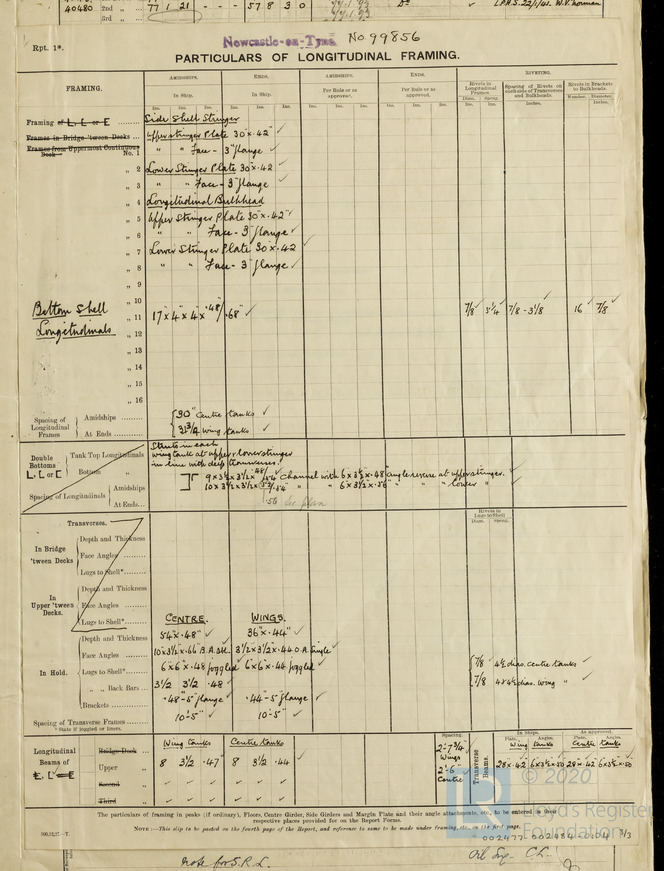 40480 2nd „ 77 1 21 - - - 57 8 3 0
3rd „
L.P.H.S. 22/1/41. W.V. Norman
Rpt. 1*.
Newcastle-on-Tyne No. 99856
PARTICULARS OF LONGITUDINAL FRAMING.
FRAMING.
AMIDSHIPS. ENDS. AMIDSHIPS. ENDS. RIVETING.
In Ship. In Ship. Per Rule or as approved. Per Rule or as approved.
Rivets in Longitudinal Frames. Spacing of Rivets on each side of Transverses and Bulkheads. Rivets in Brackets to Bulkheads.
Ins. Ins. Ins. Ins. Ins. Ins. Ins. Ins. Ins. Ins. Ins. Ins. Diam. Spcng. Inches. Number. Diameter.
Framing of L, L or E Side Shell Stringer
Frames in Bridge 'tween Decks ... Upper Stringer Plate 30"x.42" ✓
Frames from Uppermost Continuous Deck No. 1 „ „ Face - 3" flange ✓
„ 2 Lower Stringer Plate 30"x.42" ✓
„ 3 „ „ Face - 3" flange ✓
„ 4 Longitudinal Bulkhead
„ 5 Upper Stringer Plate 30"x.42" ✓
„ 6 „ „ Face - 3" flange ✓
„ 7 Lower Stringer Plate 30"x.42 ✓
„ 8 „ „ Face - 3" flange ✓
„ 9
„ 10
Bottom Shell Longitudinals
„ 11 17"x4"x4"x.48"/.68" ✓ 7/8 5 1/4 7/8 - 3 1/8 16 7/8
„ 12
„ 13
„ 14
„ 15
„ 16
Spacing of Longitudinal Frames
Amidships ......... 30" Centre tanks ✓
At Ends ......... 31 3/4 Wing tanks ✓
Double Bottoms L, L, or E
Tank Top Longitudinals
Bottom „
Struts in each
wing tank at upper & lower stringer
in line with deep transverses.
9x3½x3½x.48/.54 Channel with 6x3½x.48 angle reverse at upper stringer. ✓
10x3½x3½x.52/.54" „ „ 6x3½x.56 „ „ „ lower „ ✓
Spacing of Longitudinals
Amidships
At Ends... .56 See plan
Transverses.
Rivets in Lugs to Shell
Diam. Spcng.
In Bridge 'tween Decks
Depth and Thickness
Face Angles .........
Lugs to Shell* .........
In Upper 'tween Decks.
Depth and Thickness
Face Angles .........
Lugs to Shell* .........
CENTRE. WINGS.
In Hold.
Depth and Thickness 54"x.48" ✓ 36"x.44" ✓
Face Angles ......... 10"x3½"x.66" B.A. 3½x3½x.44 O.A. Single ✓
Lugs to Shell* ...... 6"x6"x.48 joggled 6"x6"x.44 joggled ✓ 7/8 4½ dias. centre tanks ✓
„ „ Back Bars . 3½ 3½ .48 ✓ 7/8 4&4½ dias. Wing „ ✓
Brackets ......... .48"-5" flange ✓ .44-5" flange ✓
Spacing of Transverse Frames ......... 10'-5" ✓ 10'-5" ✓
* State if joggled or liners.
Longitudinal Beams of L, L or E
Bridge Deck ...
Upper „ ...
Second „ ...
Third „ ...
Wing tanks Centre tanks
8 3½ .47 8 3½ .44 ✓
Spacing
2'-7¾" Wings
2'-6" Centre
Transverse Beams.
In Ships. As approved.
Plate. Angles. Plate. Angles.
Wing tanks Centre tanks
28x.42 6x3½x.50 28x.42 6x3½x.50
The particulars of framing in peaks (if ordinary), Floors, Centre Girder, Side Girders and Margin Plate and their angle attachments, etc., to be entered in their
respective places provided for on the Report Forms.
NOTE.—This slip to be pasted on the fourth page of the Report, and reference to same to be made under framing, etc., on the first page.
© 2020
Lloyd's Register
Foundation
002477-002484-0104 1/3
note for S.R.L.